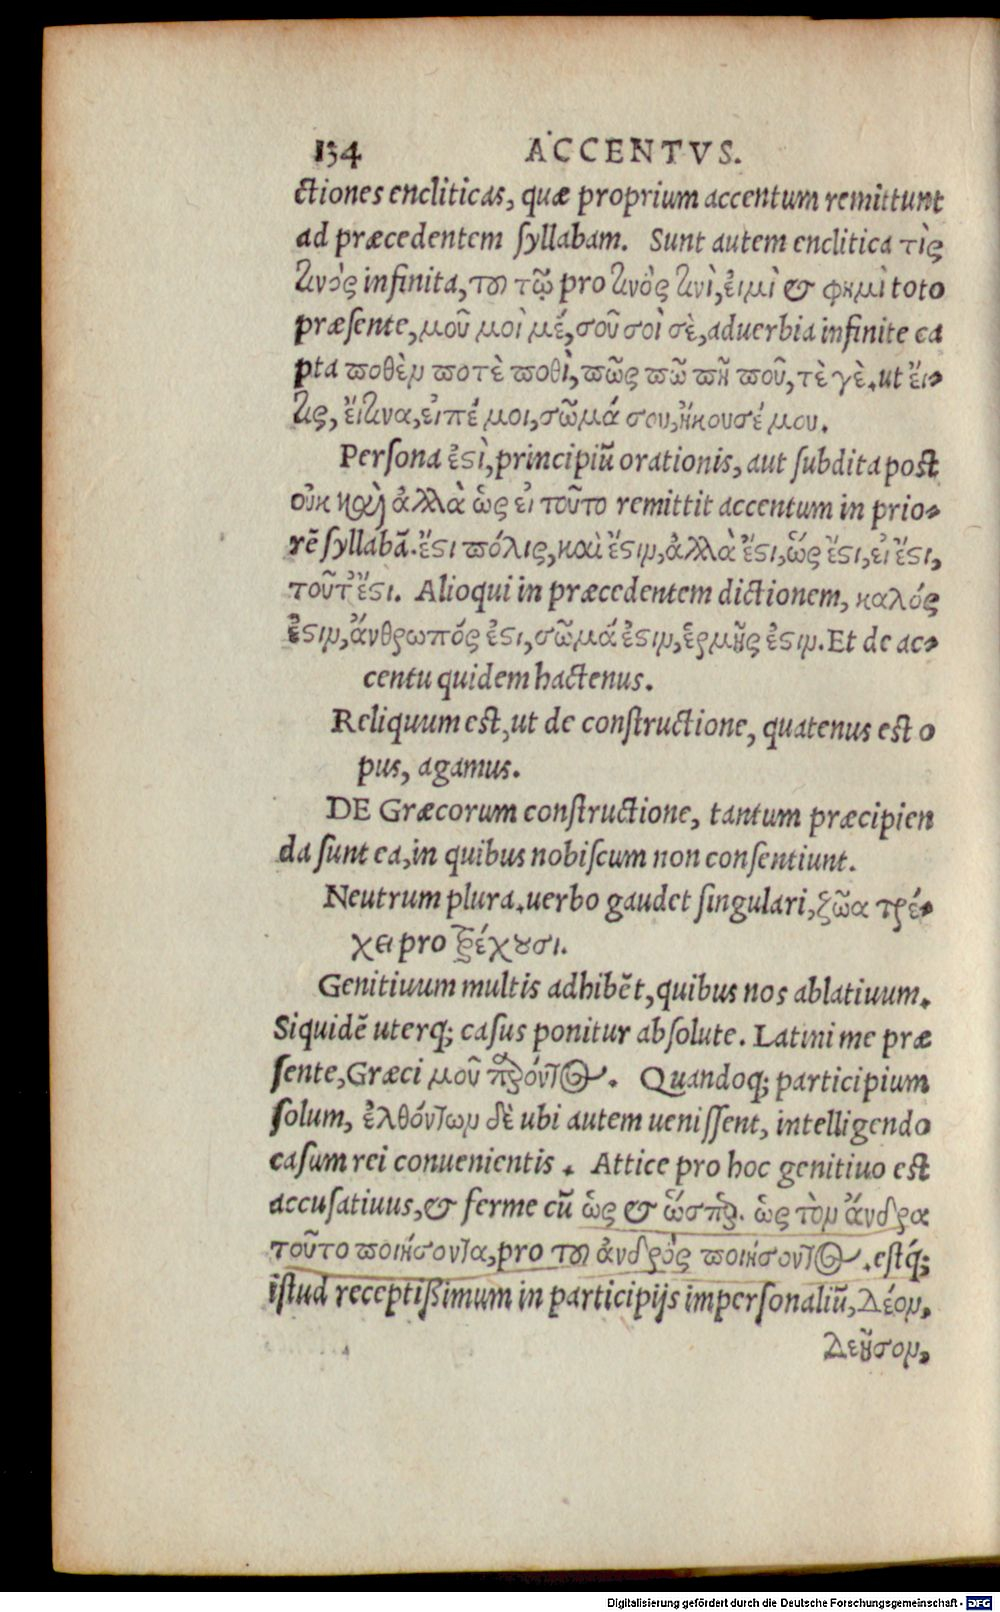 134 ACCENTVS.
ctiones encliticas, quæ proprium accentum remittunt
ad præcedentem syllabam. Sunt autem enclitica τὶς
τινὸς infinita, του τῷ pro τινὸς τινὶ, ἐιμὶ & φημὶ toto
præsente, μοῦ μοὶ μέ, σοῦ σοὶ σὲ, aduerbia infinite ca
pta ποθὲν ποτὲ ποθὶ, πῶς πῶ πῆ ποῦ, τὲ γὲ. ut ἔι-
τις, ἔιτινα, ἐιπέ μοι, σῶμά σου, ἤκουσέ μου.
Persona ἐστὶ, principiũ orationis, aut subdita post
οὐκ καὶ ἀλλὰ ὡς εἰ τοῦτο remittit accentum in prio-
rẽ syllabã. ἔστι πόλις, καὶ ἔστιν, ἀλλὰ ἔστι, ὥς ἔστι, εἰ ἔστι,
τοῦτ' ἔστι. Alioqui in præcedentem dictionem, καλός
ἐστιν, ἄνθρωπός ἐστι, σῶμά ἐστιν, ἑρμῆς ἐστιν. Et de ac-
centu quidem hactenus.
Reliquum est, ut de constructione, quatenus est o
pus, agamus.
DE Græcorum constructione, tantum præcipien
da sunt ea, in quibus nobiscum non consentiunt.
Neutrum plura. uerbo gaudet singulari, ζῶα τρέ-
χει pro τρέχουσι.
Genitiuum multis adhibẽt, quibus nos ablatiuum.
Siquidẽ uterq; casus ponitur absolute. Latini me præ
sente, Græci μοῦ παρόντος. Quandoq; participium
solum, ἐλθόντων δὲ ubi autem uenissent, intelligendo
casum rei conuenientis. Attice pro hoc genitiuo est
accusatiuus, & ferme cũ ὡς & ὥσπερ. ὡς τὸν ἄνδρα
τοῦτο ποιήσοντα, pro του ἀνδρός ποιήσοντος. estq́;
istud receptißimum in participijs impersonaliũ, Δέον,
Δεῆσον,
Digitalisierung gefördert durch die Deutsche Forschungsgemeinschaft - DFG